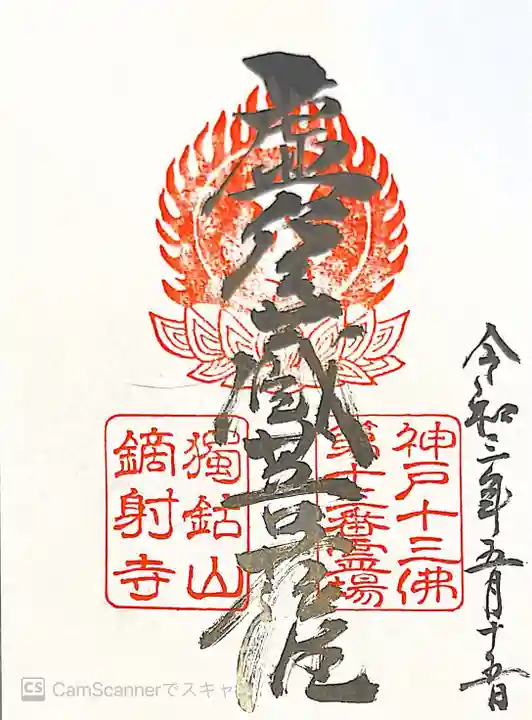 令和三年五月十五日
虚空蔵菩薩
神戸十三佛
第十三番霊場
獨鈷山
鏑射寺
CS CamScannerでスキャ